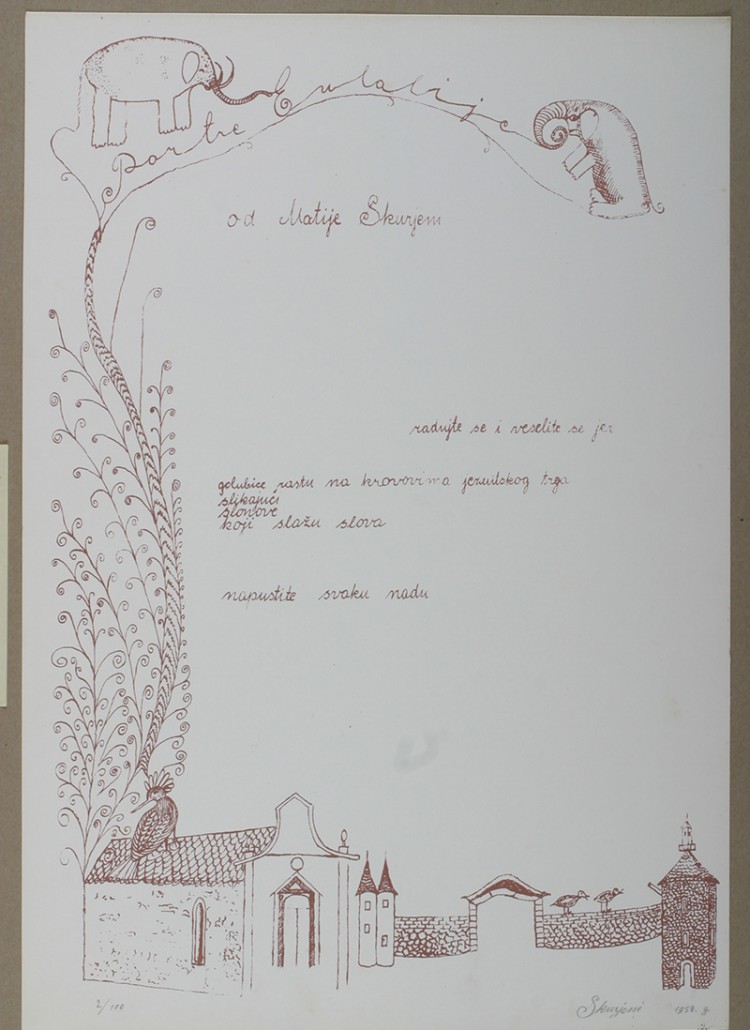 Portre Eulalije
od Matije Skurjeni
radujte se i veselite se jer
golubice rastu na krovovima jezuitskog trga
slikajući
slonove
koji slažu slova
napustite svaku nadu
2/100
Skurjeni 1959. g.